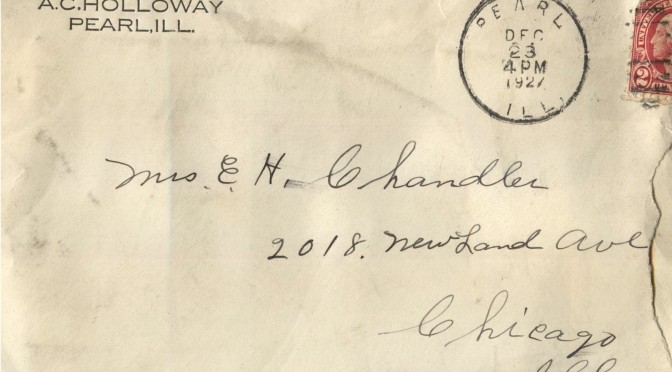 A.C. HOLLOWAY
PEARL, ILL.
PEARL
DEC
23
4 PM
1927
ILL.
2
Mrs. E. H. Chandler
2018. Newland Ave
Chicago